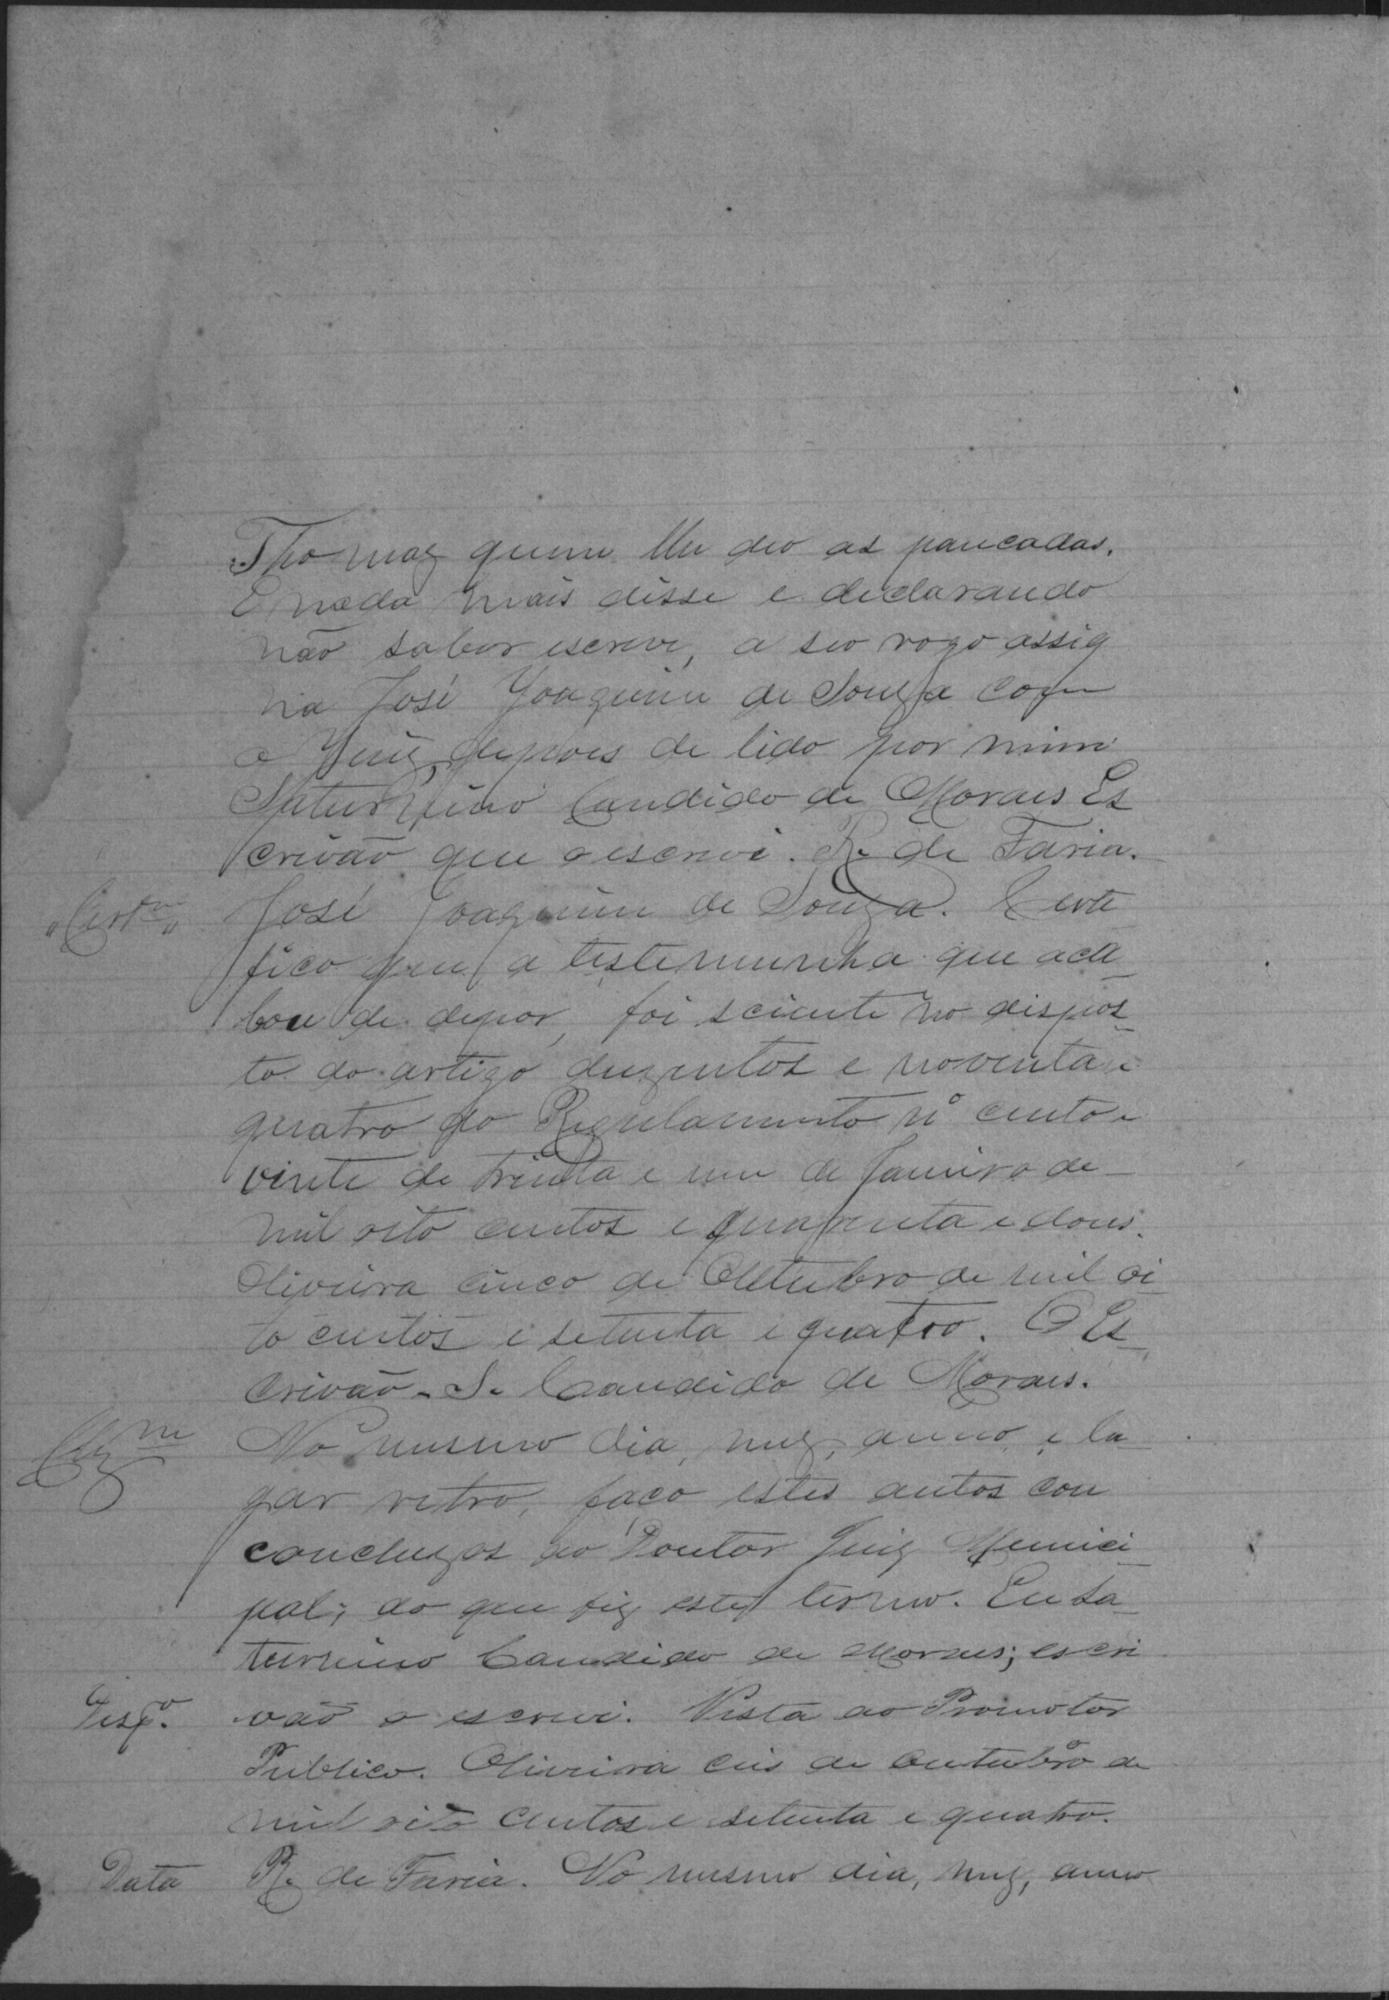 Thomaz quem lhe deo as pancadas.
E nada mais disse e declarando
não saber escrever, a seo rogo assig
na José Joaquim de Souza com
o Juiz, depois de lido por mim
Saturnino Candido de Moraes Es
crivão que o escrevi. R. de Faria.
"Cert.m" José Joaquim de Souza. Certi
fico que a testemunha que aca
bou de depor, foi sciente no dispos
to do artigo duzentos e noventa e
quatro do Regulamento nº cento e
vinte de trinta e um de Janeiro de
mil oito centos e quarenta e dous.
Oliveira cinco de Outubro de mil oi
to centos e setenta e quatro. O Es
crivão. S. Candido de Moraes.
Clz.m No mesmo dia, mez, anno, e lu
gar retro, faço estes autos con
concluzos ao Doutor Juiz Munici
pal; do que fiz este termo. Eu Sa
turnino Candido de Moraes; escri
Desp.o vão o escrevi. Vista ao Promotor
Publico. Oliveira seis de Outubro de
mil oito centos e setenta e quatro.
Data R. de Faria. No mesmo dia, mez, anno